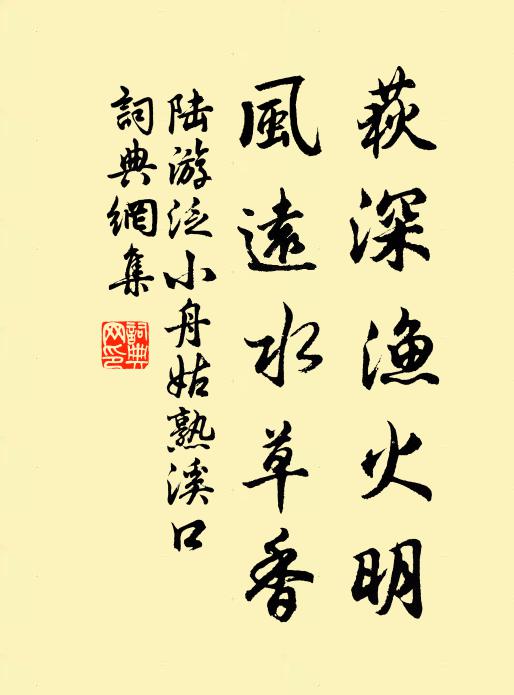 荻深漁火明
風遠水草香
陆游泛小舟姑熟溪口
詞典網集
詞典網印